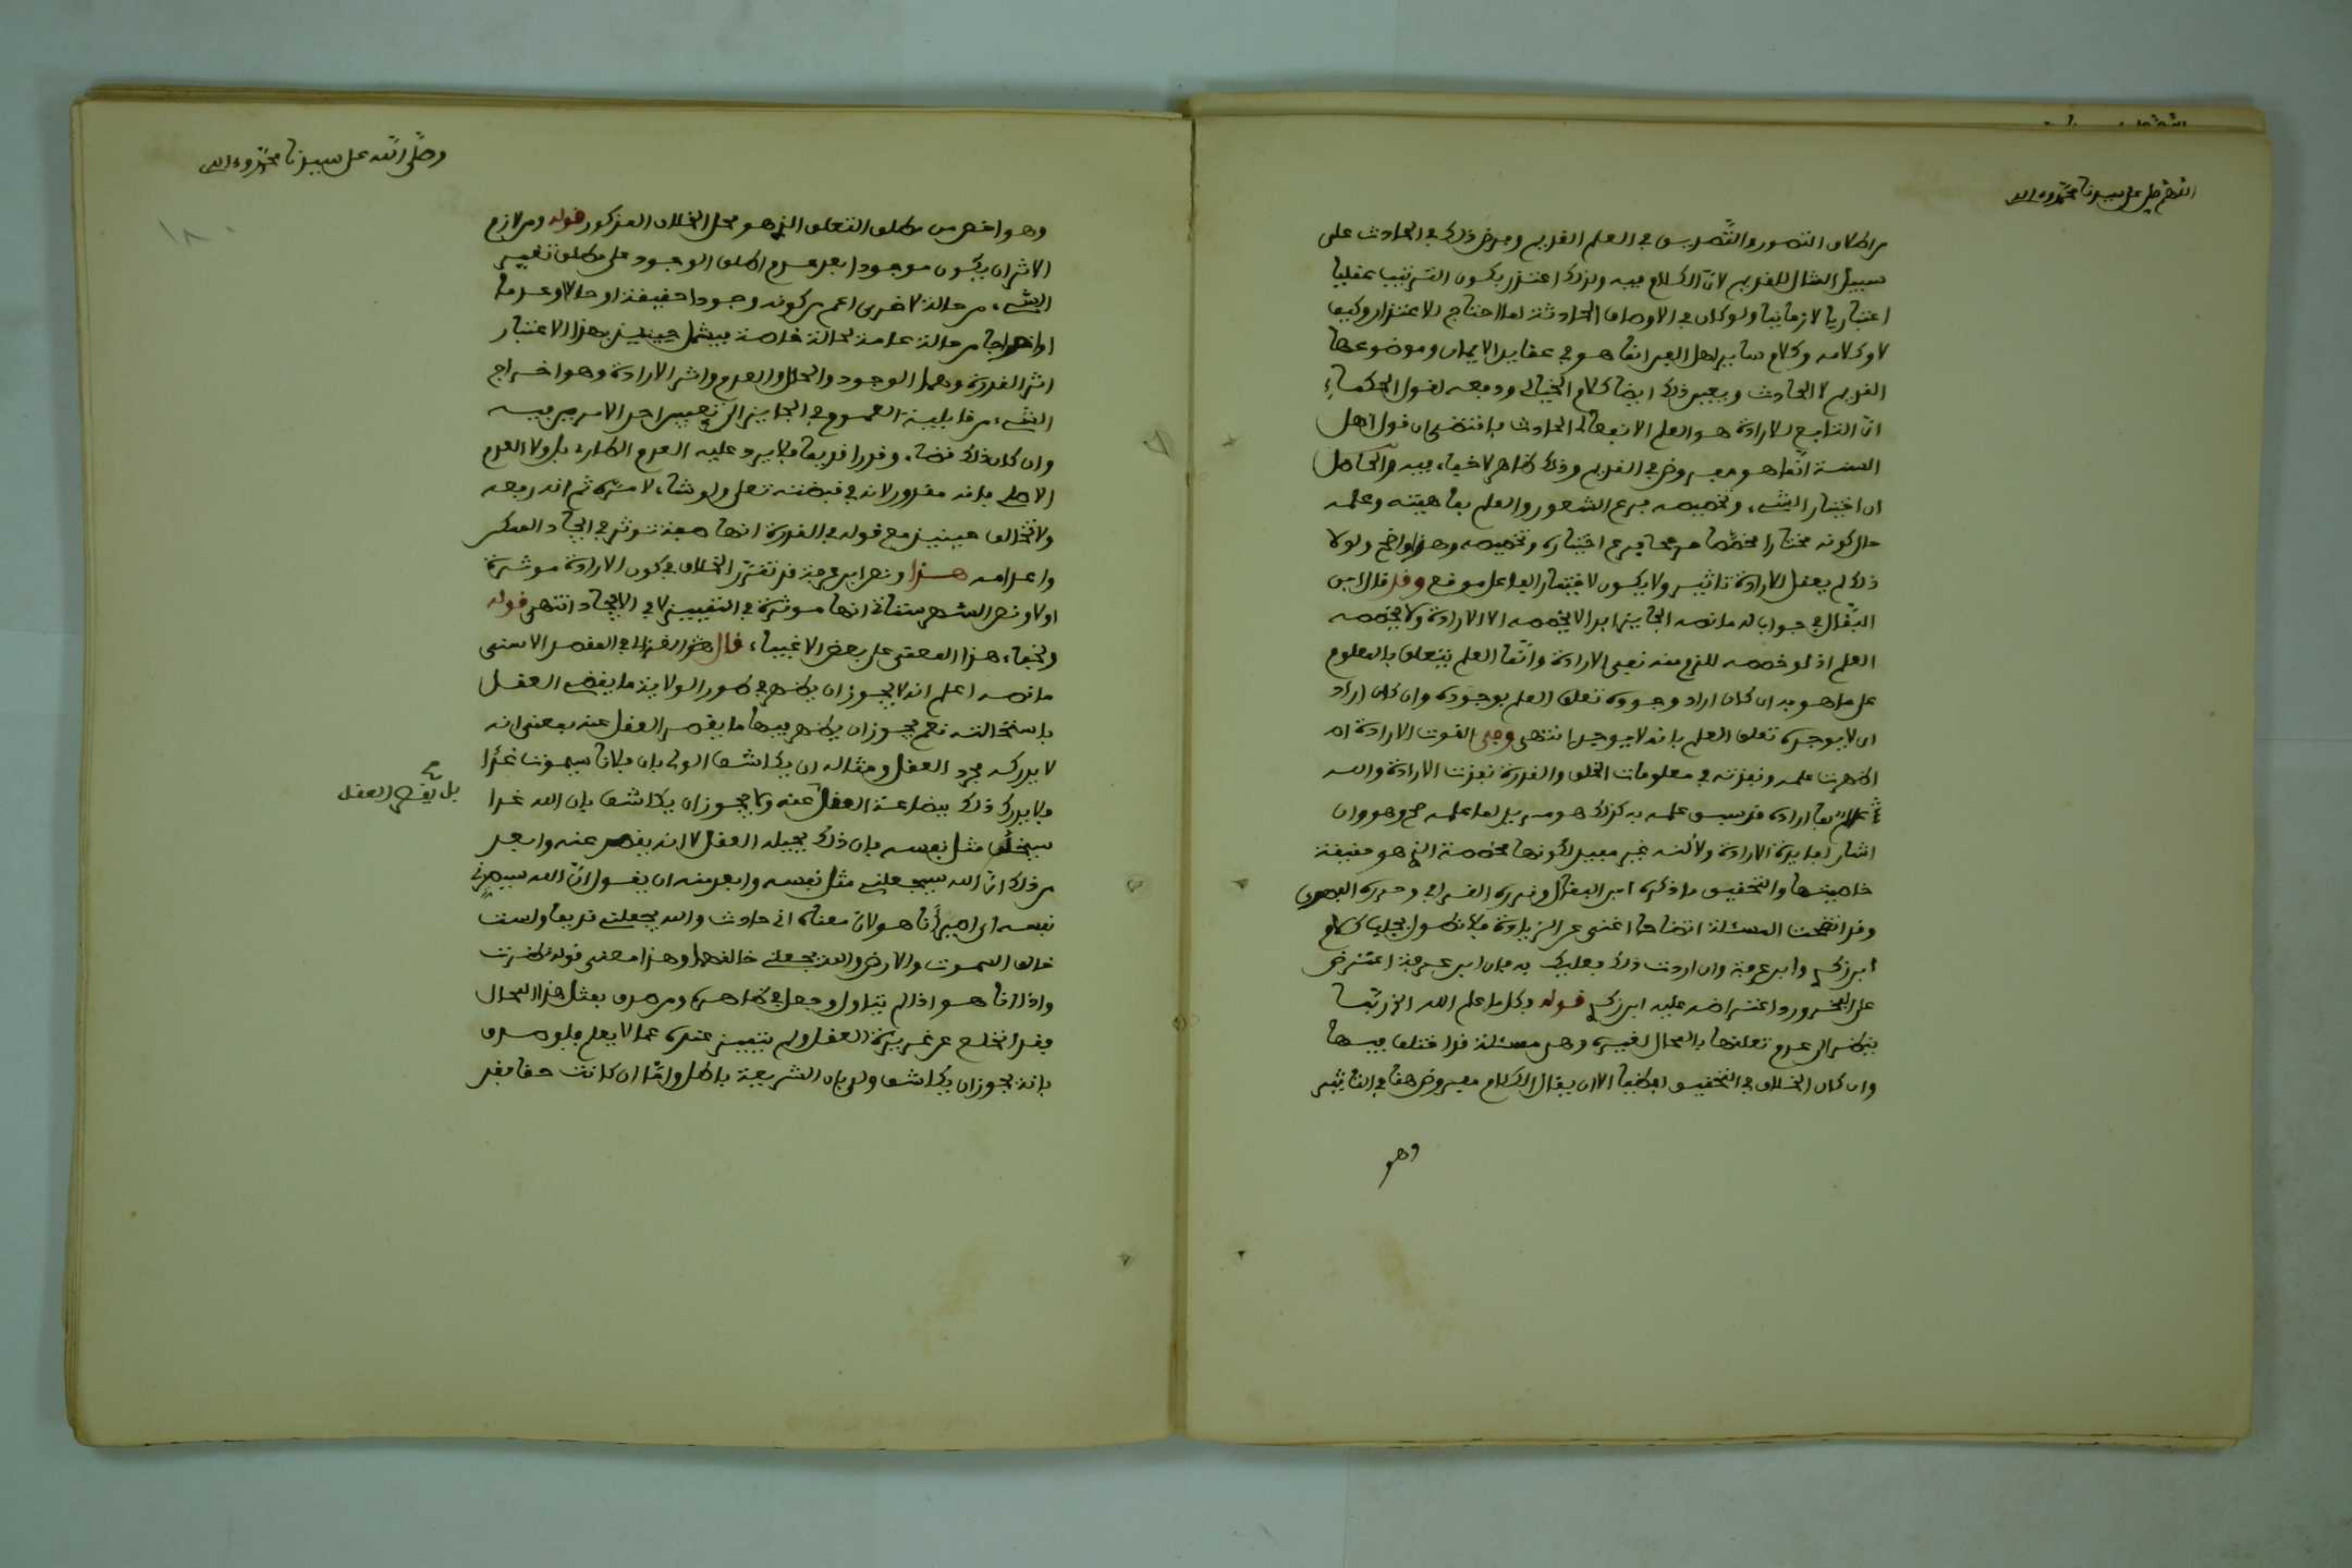 اللهم صل على سيدنا محمد وءاله
من اطلاق التصور والتصديق في العلم القديم وفرض ذلك في الحادث على
سبيل المثال للقديم لان الكلام فيه ولذلك اعتذر بكون الترتيب عقليا
اعتباريا لا زمانيا ولو كان في الاوصاف الحادثة لما احتاج للاعتذار وكيف
لا وكلامه وكلام ساير اهل الفن انما هو في عقايد الايمان وموضوعها
القديم لا الحادث ويعين ذلك ايضا كلام الخيالي ودفعه لقول الحكماء
ان التابع للارادة هو العلم الانفعالي الحادث فاقتضى ان قول اهل
السنة انما هو مفروض في القديم وذلك ظاهر لا خفاء فيه والحاصل
ان اختيار الشيء وتخصيصه فرع الشعور والعلم بماهيته وعلمه
حال كونه مختارا مخصصا مرجحا فرع اختياره وتخصيصه وهذا واضح ولولا
ذلك لم يعقل للارادة تاثير ولا يكون لاختيار الفاعل موقع وقد قال ابن
البقال في جواب له ما نصه الجايز ابدا لا يخصصه الا الارادة ولا يخصصه
العلم اذ لو خصصه للزم منه نفي الارادة وانما العلم يتعلق بالمعلوم
على ما هو به ان كان اراد وجوده تعلق العلم بوجوده وان كان اراد
ان لا يوجده تعلق العلم بانه لا يوجد انتهى وفي القوت الارادة
اظهرت علمه ونفذته في معلومات الخلق والقدرة نفذت الارادة والله
بما اراده قد سبق علمه به كذلك هو مريد لما علمه صح وهو وان
اشار لفايدة الارادة ولاكنه غير مفيد لكونها مخصصة الذي هو حقيقة
خاصيتها والتحقيق ما ذكره ابن البقال وقرره القرافي وحرره الفهري
وقد اتضحت المسئلة اتضاحا اغنى عن الزيادة فلا نطول بجلب كلام
ابن زكري وابن عرفة وان اردت ذلك فعليك به فان ابن عرفة اعترض
على الفخر ورد اعتراضه عليه ابن زكري قوله وكل ما علم الله انه ربما
ينظر الى عدم تعلقها بالمحال لغيره وهي مسئلة قد اختلف فيها
وان كان الخلاف في التحقيق لفظيا الا ان يقال الكلام مفروض هنا في التاثير
وهو
وصلى الله على سيدنا محمد وءاله
١٨٠
وهو اخص من مطلق التعلق الذي هو محل الخلاف المذكور قوله ومن لازم
الاثر ان يكون موجودا بعد عدم اطلق الوجود على مطلق تغيير
الشيء من حالة لاخرى اعم من كونه وجودا حقيقة او حالا وعدما
او اخراجا من حالة عامة لحالة خاصة فيشمل حينيذ بهذا الاعتبار
اثر القدرة وهما الوجود والحال والعدم واثر الارادة وهو اخراج
الشيء من قابلية العموم في الجايز الى تعيين احد الامرين فيه
وان كان ذلك قضاء وقدرا قديما فلا يرد عليه العدم الطاري بل ولا العدم
الاصلي فانه مقدور لانه في قبضته تعالى ولو شاء لاستمر ثم انه رفعه
ولا تخالف حينيذ مع قوله في القدرة انها صفة توثر في ايجاد الممكن
واعدامه هذا ونص ابن عرفة قد تقرر الخلاف في كون الارادة موثرة
او لا ونص الشهرستاني انها موثرة في التمييز لا في الايجاد انتهى قوله
وتخفاء هذا المعنى على بعض الاغبياء قال الغزالي في المقصد الاسنى
ما نصه اعلم انه لا يجوز ان يظهر في طور الولاية ما يقضي العقل
باستحالته نعم يجوز ان يظهر فيها ما يقصر العقل عنه بمعنى انه
لا يدركه مجرد العقل ومثاله ان يكاشف الولي بان فلانا سيموت غدا
فلا يدرك ذلك ببضاعة العقل عنه ولا يجوز ان يكاشف بان الله غدا
بل يقصر العقل
سيخلق مثل نفسه فان ذلك يحيله العقل لا انه يقصر عنه وابعد
من ذلك ان الله سيجعلني مثل نفسه وابعد منه ان يقول ان الله سيصيرني
نفسه اي اصير انا هو لان معناه اني حادث والله يجعلني قديما ولست
خالق السموت والارض والله يجعلني خالقهما وهذا معنى قوله نظرت
واذا انا هو اذا لم يتاول وجعل على ظاهره ومن صدق بمثل هذا المحال
فقد انخلع عن غريزة العقل ولم يتميز عنده عما لا يعلم فلو صدق
بانه يجوز ان يكاشف ولي بان الشريعة باطل وانها ان كانت حقا فقد